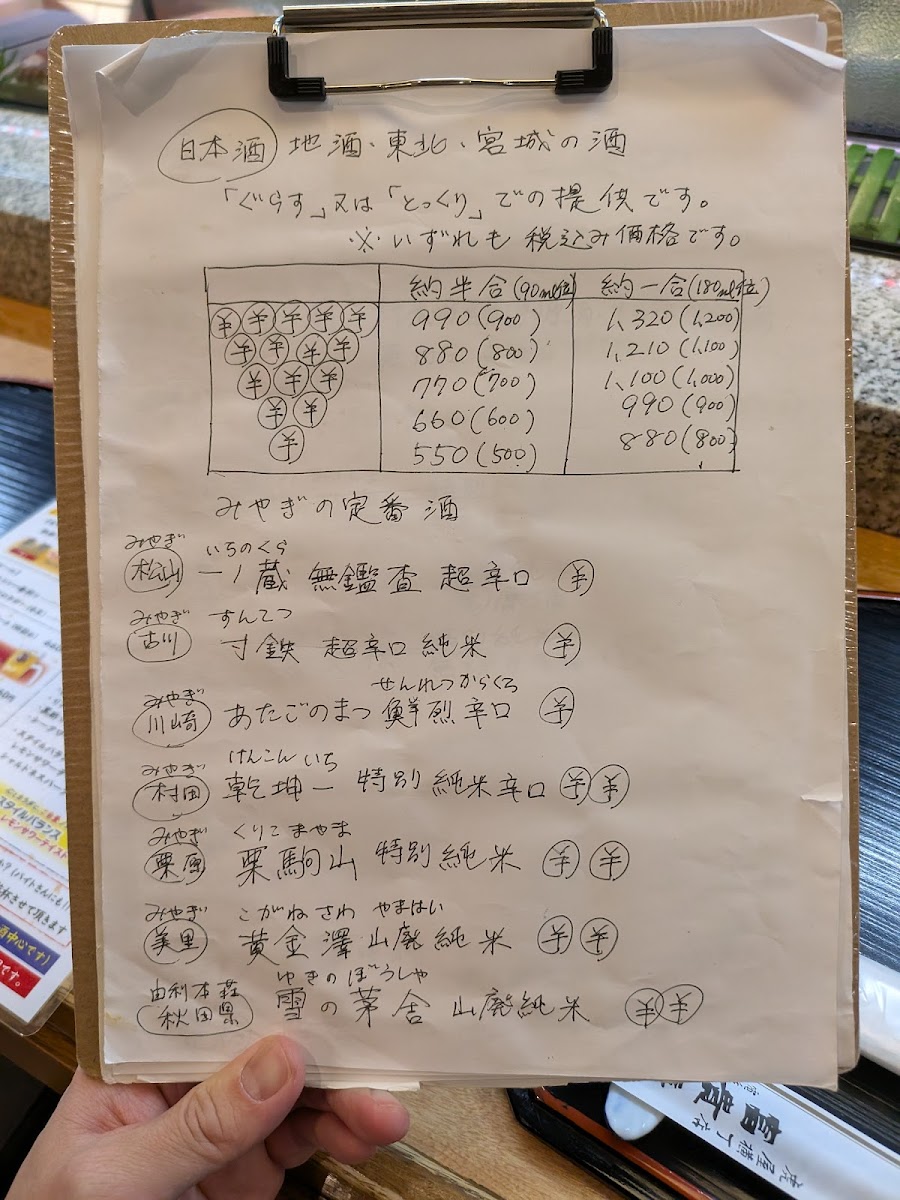 日本酒 地酒・東北・宮城の酒
「ぐらす」又は「とっくり」での提供です。
※いずれも税込み価格です。
約半合(90ml位) 約一合(180ml位)
¥ ¥ ¥ ¥ ¥ 990(900) 1,320(1,200)
¥ ¥ ¥ ¥ 880(800) 1,210(1,100)
¥ ¥ ¥ 770(700) 1,100(1,000)
¥ ¥ 660(600) 990(900)
¥ 550(500) 880(800)
みやぎの定番酒
みやぎ いちのくら
松山 一ノ蔵 無鑑査 超辛口 ¥
みやぎ すんてつ
古川 寸鉄 超辛口 純米 ¥
みやぎ せんれつからくち
川崎 あたごのまつ 鮮烈辛口 ¥
みやぎ けんこんいち
村田 乾坤一 特別純米辛口 ¥ ¥
みやぎ くりこまやま
栗原 栗駒山 特別純米 ¥ ¥
みやぎ こがねさわ やまはい
美里 黄金澤 山廃純米 ¥ ¥
由利本荘 ゆきのぼうしゃ
秋田県 雪の茅舎 山廃純米 ¥ ¥
スタイルバランス
レモンサワーテイスト
虎屋横丁店